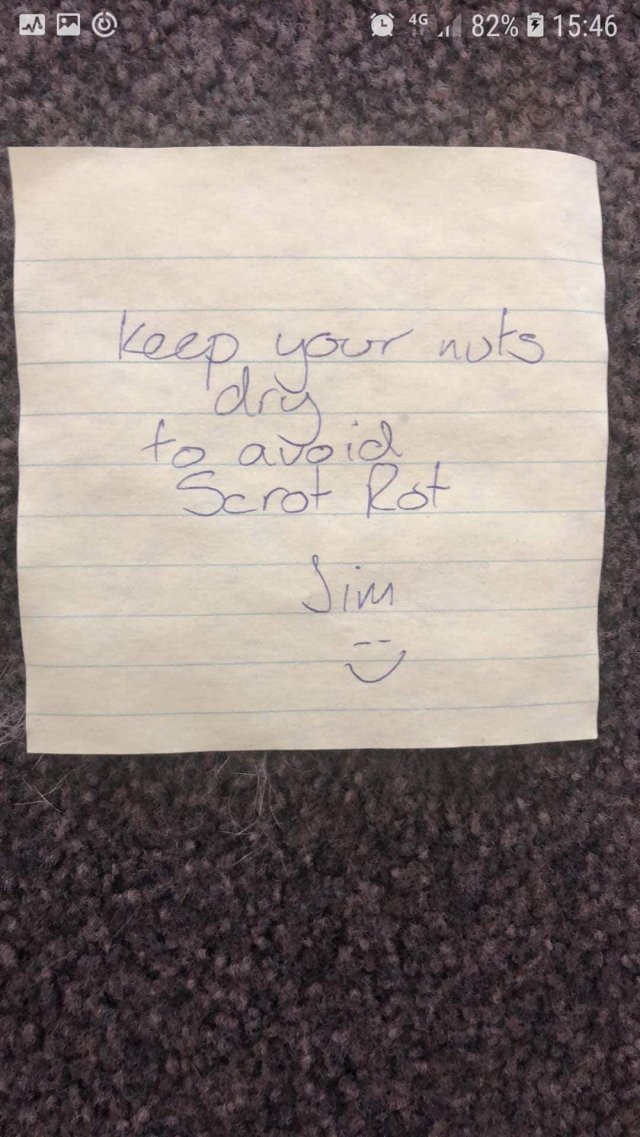 4G 82% 15:46
keep your nuts
dry
to avoid
Scrot Rot
Jim